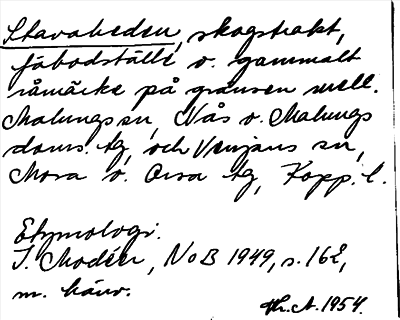 Stavaheden, skogstrakt,
fäbodställe o. gammalt
råmärke på gränsen mell.
Malungs sn, Nås o. Malungs
doms. tg, och Venjans sn,
Mora o. Orsa tg, Kopp. l.
Etymologi.
I. Modéer, NoB 1949, s. 162,
m. hänv.
Th. A. 1954.